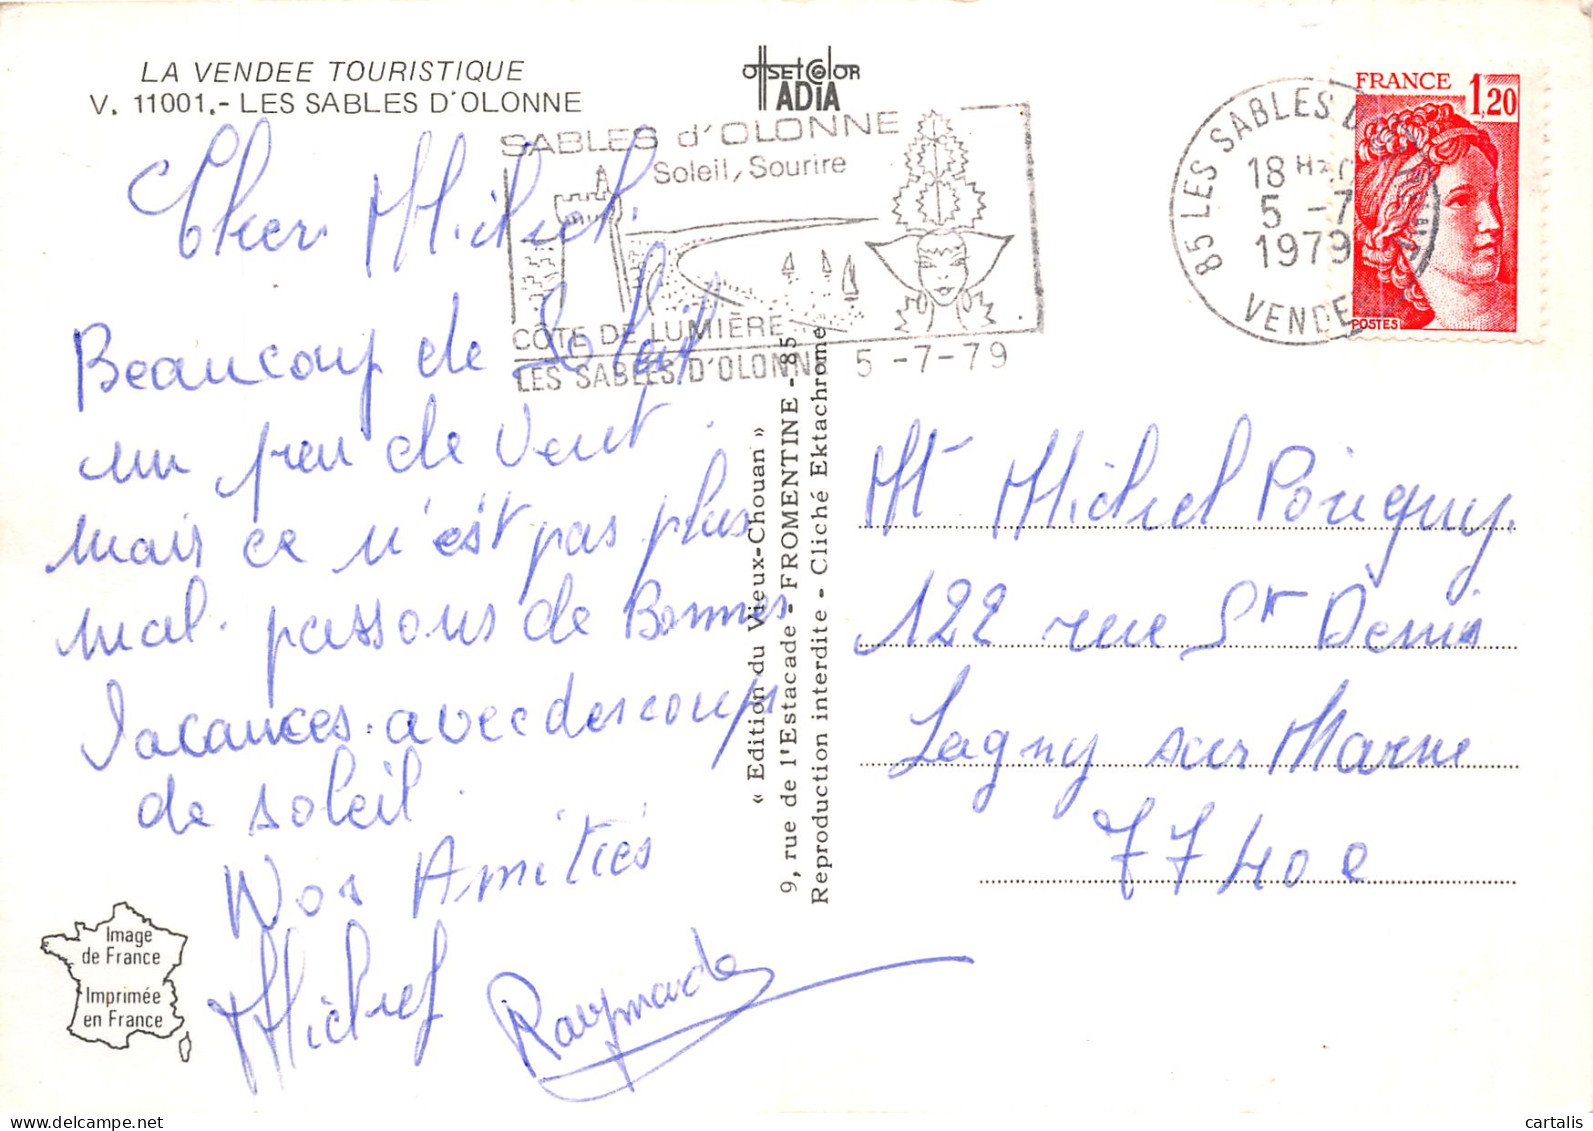 LA VENDEE TOURISTIQUE
V. 11001.- LES SABLES D'OLONNE
offset color
ADIA
SABLES d'OLONNE
Soleil, Sourire
CÔTE DE LUMIÈRE
LES SABLES D'OLONNE 5 -7-79
85 LES SABLES D'
18 H
5 -7
1979
VENDEE
FRANCE 1,20
POSTES
Cher Michel.
Beaucoup de Soleil
un peu de vent.
mais ce n'est pas plus
mal. passons de Bonnes
Vacances. avec des coups
de soleil.
Nos Amitiés
Michel Raymonde
« Edition du Vieux-Chouan »
9, rue de l'Estacade - FROMENTINE - 85
Reproduction interdite - Cliché Ektachrome
Mr Michel
122 rue St Denis
Lagny sur Marne
77400
Image
de France
Imprimée
en France
www.delcampe.net
cartalis